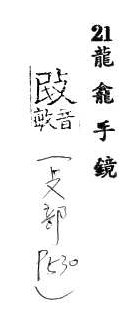 21 龍龕手鏡
敃 音敏
(支部 P530)